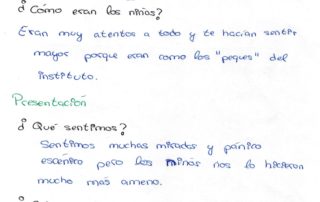 ¿Cómo eran los niños?
Eran muy atentos a todo y te hacían sentir
mayor porque eran como los "peques" del
instituto.
Presentación
¿Qué sentimos?
Sentimos muchas miradas y pánico
escénico pero los niños nos lo hicieron
mucho más ameno.